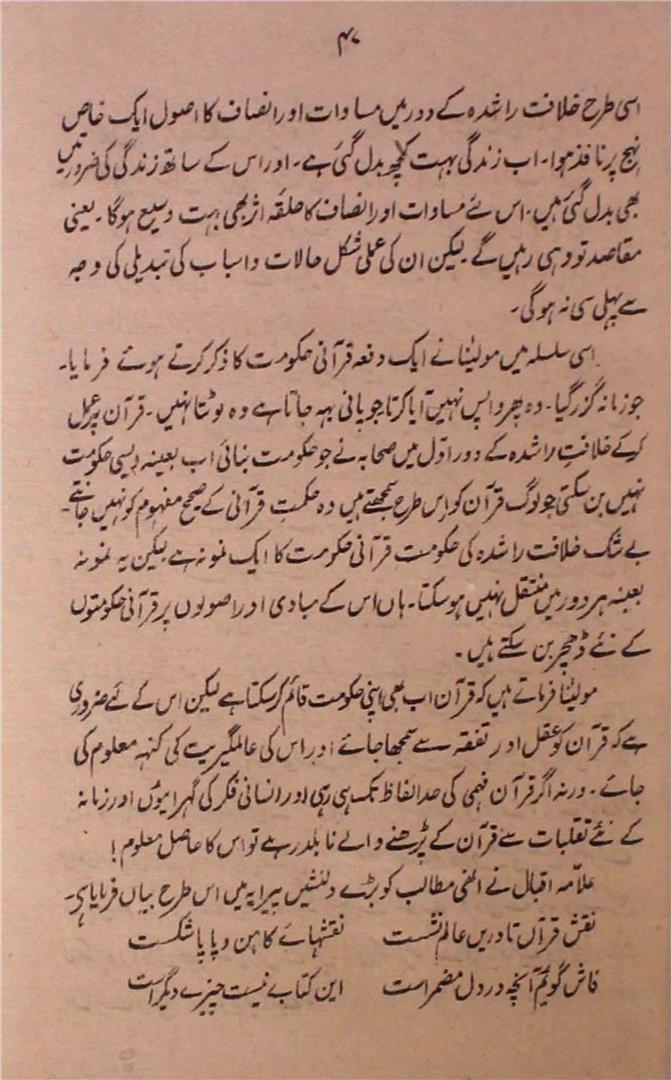 ۴۷
اسی طرح خلافت راشدہ کے دور میں مساوات اور انصاف کا اصول ایک خاص
نہج پر نافذ ہوا۔ اب زندگی بہت کچھ بدل گئی ہے۔ اور اس کے ساتھ زندگی کی ضرورتیں
بھی بدل گئی ہیں۔ اس لئے مساوات اور انصاف کا حلقہ اثر بھی بہت وسیع ہوگا۔ یعنی
مقاصد تو وہی رہیں گے لیکن ان کی عملی شکل حالات واسباب کی تبدیلی کی وجہ
سے پہلی سی نہ ہوگی۔
اسی سلسلہ میں مولینٰا نے ایک دفعہ قرآنی حکومت کا ذکر کرتے ہوئے فرمایا۔
جو زمانہ گزر گیا۔ وہ پھر واپس نہیں آیا کرتا جو پانی بہہ جاتا ہے وہ لوٹتا نہیں۔ قرآن پر عمل
کرکے خلافتِ راشدہ کے دور اول میں صحابہ نے جو حکومت بنائی اب بعینہ ویسی حکومت
نہیں بن سکتی جو لوگ قرآن کو اس طرح سمجھتے ہیں وہ حکمتِ قرآنی کے صحیح مفہوم کو نہیں جانتے۔
بے شک خلافت راشدہ کی حکومت قرآنی حکومت کا ایک نمونہ ہے لیکن یہ نمونہ
بعینہ ہر دور میں منتقل نہیں ہوسکتا۔ ہاں اس کے مبادی اور اصولوں پر قرآنی حکومتوں
کے نئے ڈھچر بن سکتے ہیں۔
مولینٰا فرماتے ہیں کہ قرآن اب بھی اپنی حکومت قائم کرسکتا ہے لیکن اس کے لئے ضروری
ہے کہ قرآن کو عقل اور تفقہ سے سمجھا جائے اور اس کی عالمگیریت کی کنہہ معلوم کی
جائے۔ ورنہ اگر قرآن فہمی کی حد الفاظ تک ہی رہی اور انسانی فکر کی گہرائیوں اور زمانہ
کے نئے تقلبات سے قرآن کے پڑھنے والے نابلد رہے تو اس کا حاصل معلوم!
علامہ اقبال نے انھی مطالب کو بڑے دلنشیں پیرایہ میں اس طرح بیاں فرمایا ہی۔
نقش قرآں تا دریں عالم نشست نقشہائے کاہن و پاپا شکست
فاش گویم آنچہ در دل مضمر است ایں کتابے نیست چیزے دیگر است